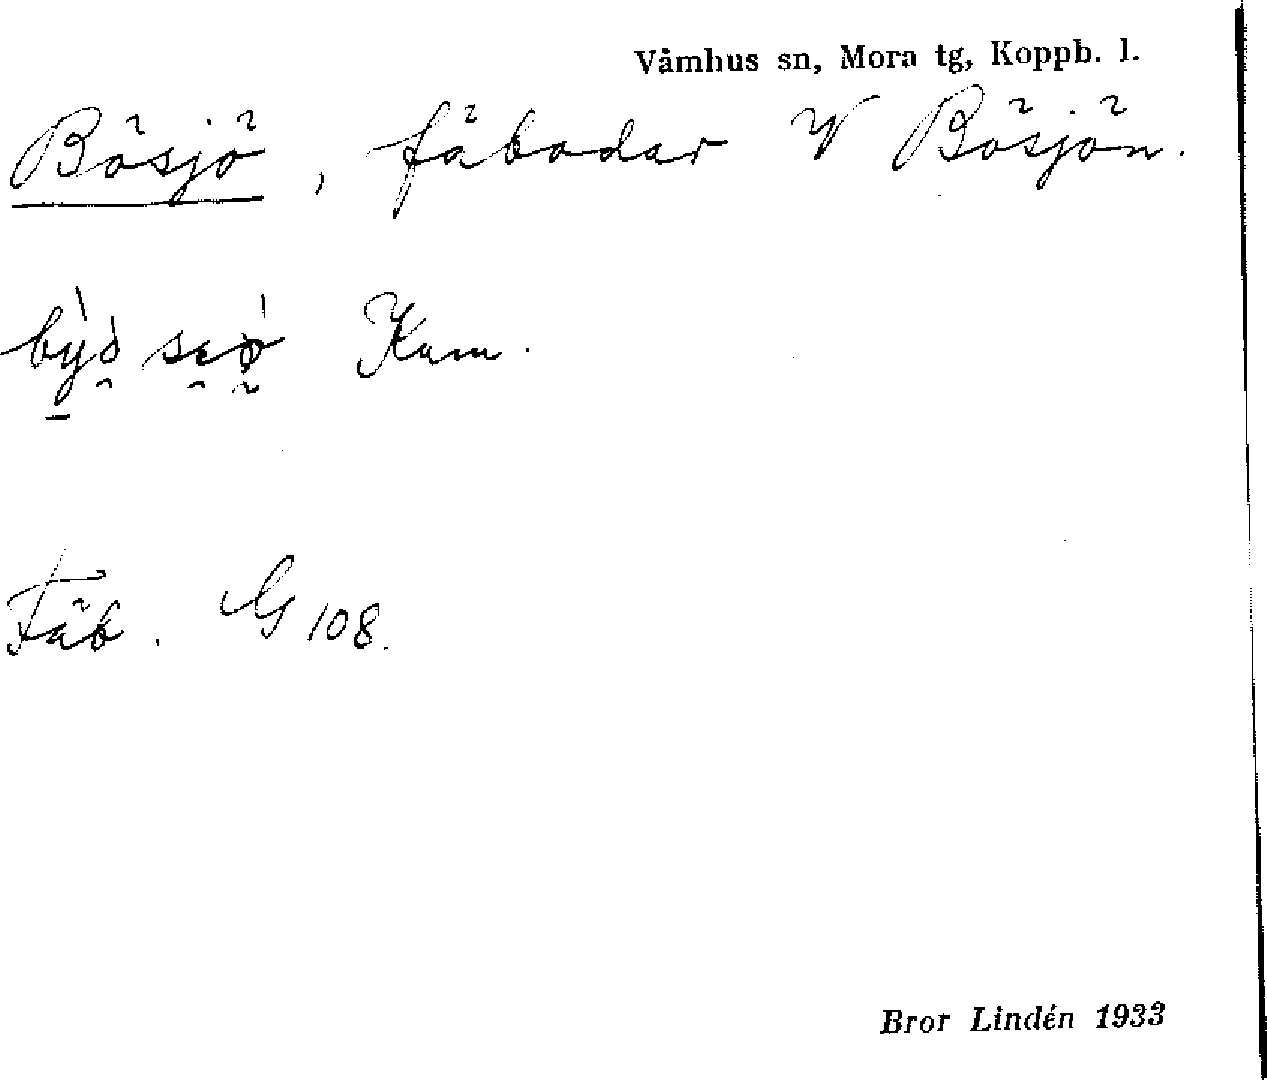 Våmhus sn, Mora tg, Koppb. l.
Bösjö, fäbodar V Bösjön.
Kum.
Fäb. G 108.
Bror Lindén 1933